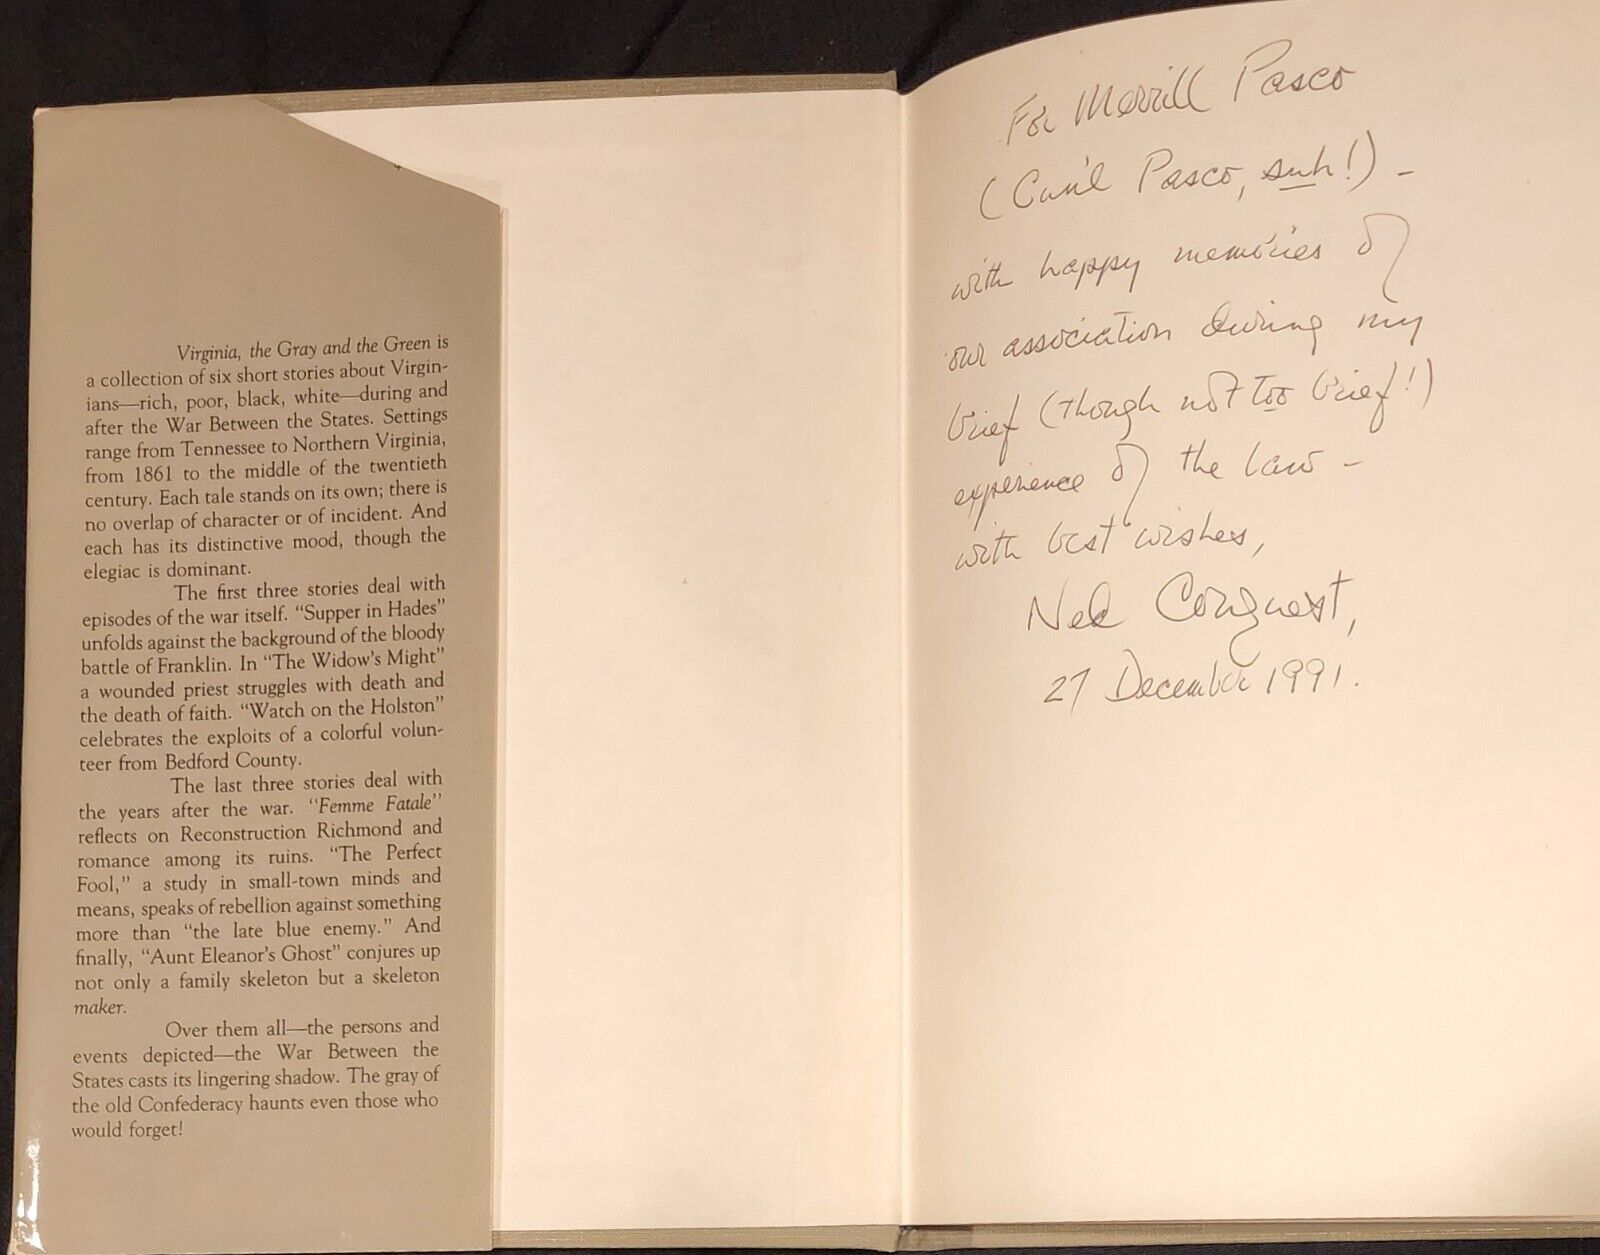 Virginia, the Gray and the Green is
a collection of six short stories about Virgin-
ians—rich, poor, black, white—during and
after the War Between the States. Settings
range from Tennessee to Northern Virginia,
from 1861 to the middle of the twentieth
century. Each tale stands on its own; there is
no overlap of character or of incident. And
each has its distinctive mood, though the
elegiac is dominant.
The first three stories deal with
episodes of the war itself. “Supper in Hades”
unfolds against the background of the bloody
battle of Franklin. In “The Widow’s Might”
a wounded priest struggles with death and
the death of faith. “Watch on the Holston”
celebrates the exploits of a colorful volun-
teer from Bedford County.
The last three stories deal with
the years after the war. “Femme Fatale”
reflects on Reconstruction Richmond and
romance among its ruins. “The Perfect
Fool,” a study in small-town minds and
means, speaks of rebellion against something
more than “the late blue enemy.” And
finally, “Aunt Eleanor’s Ghost” conjures up
not only a family skeleton but a skeleton
maker.
Over them all—the persons and
events depicted—the War Between the
States casts its lingering shadow. The gray of
the old Confederacy haunts even those who
would forget!
For Merrill Pasco
(Cun'l Pasco, suh!) –
with happy memories of
our association during my
brief (though not too brief!)
experience of the law –
with best wishes,
Ned Conquest,
27 December 1991.